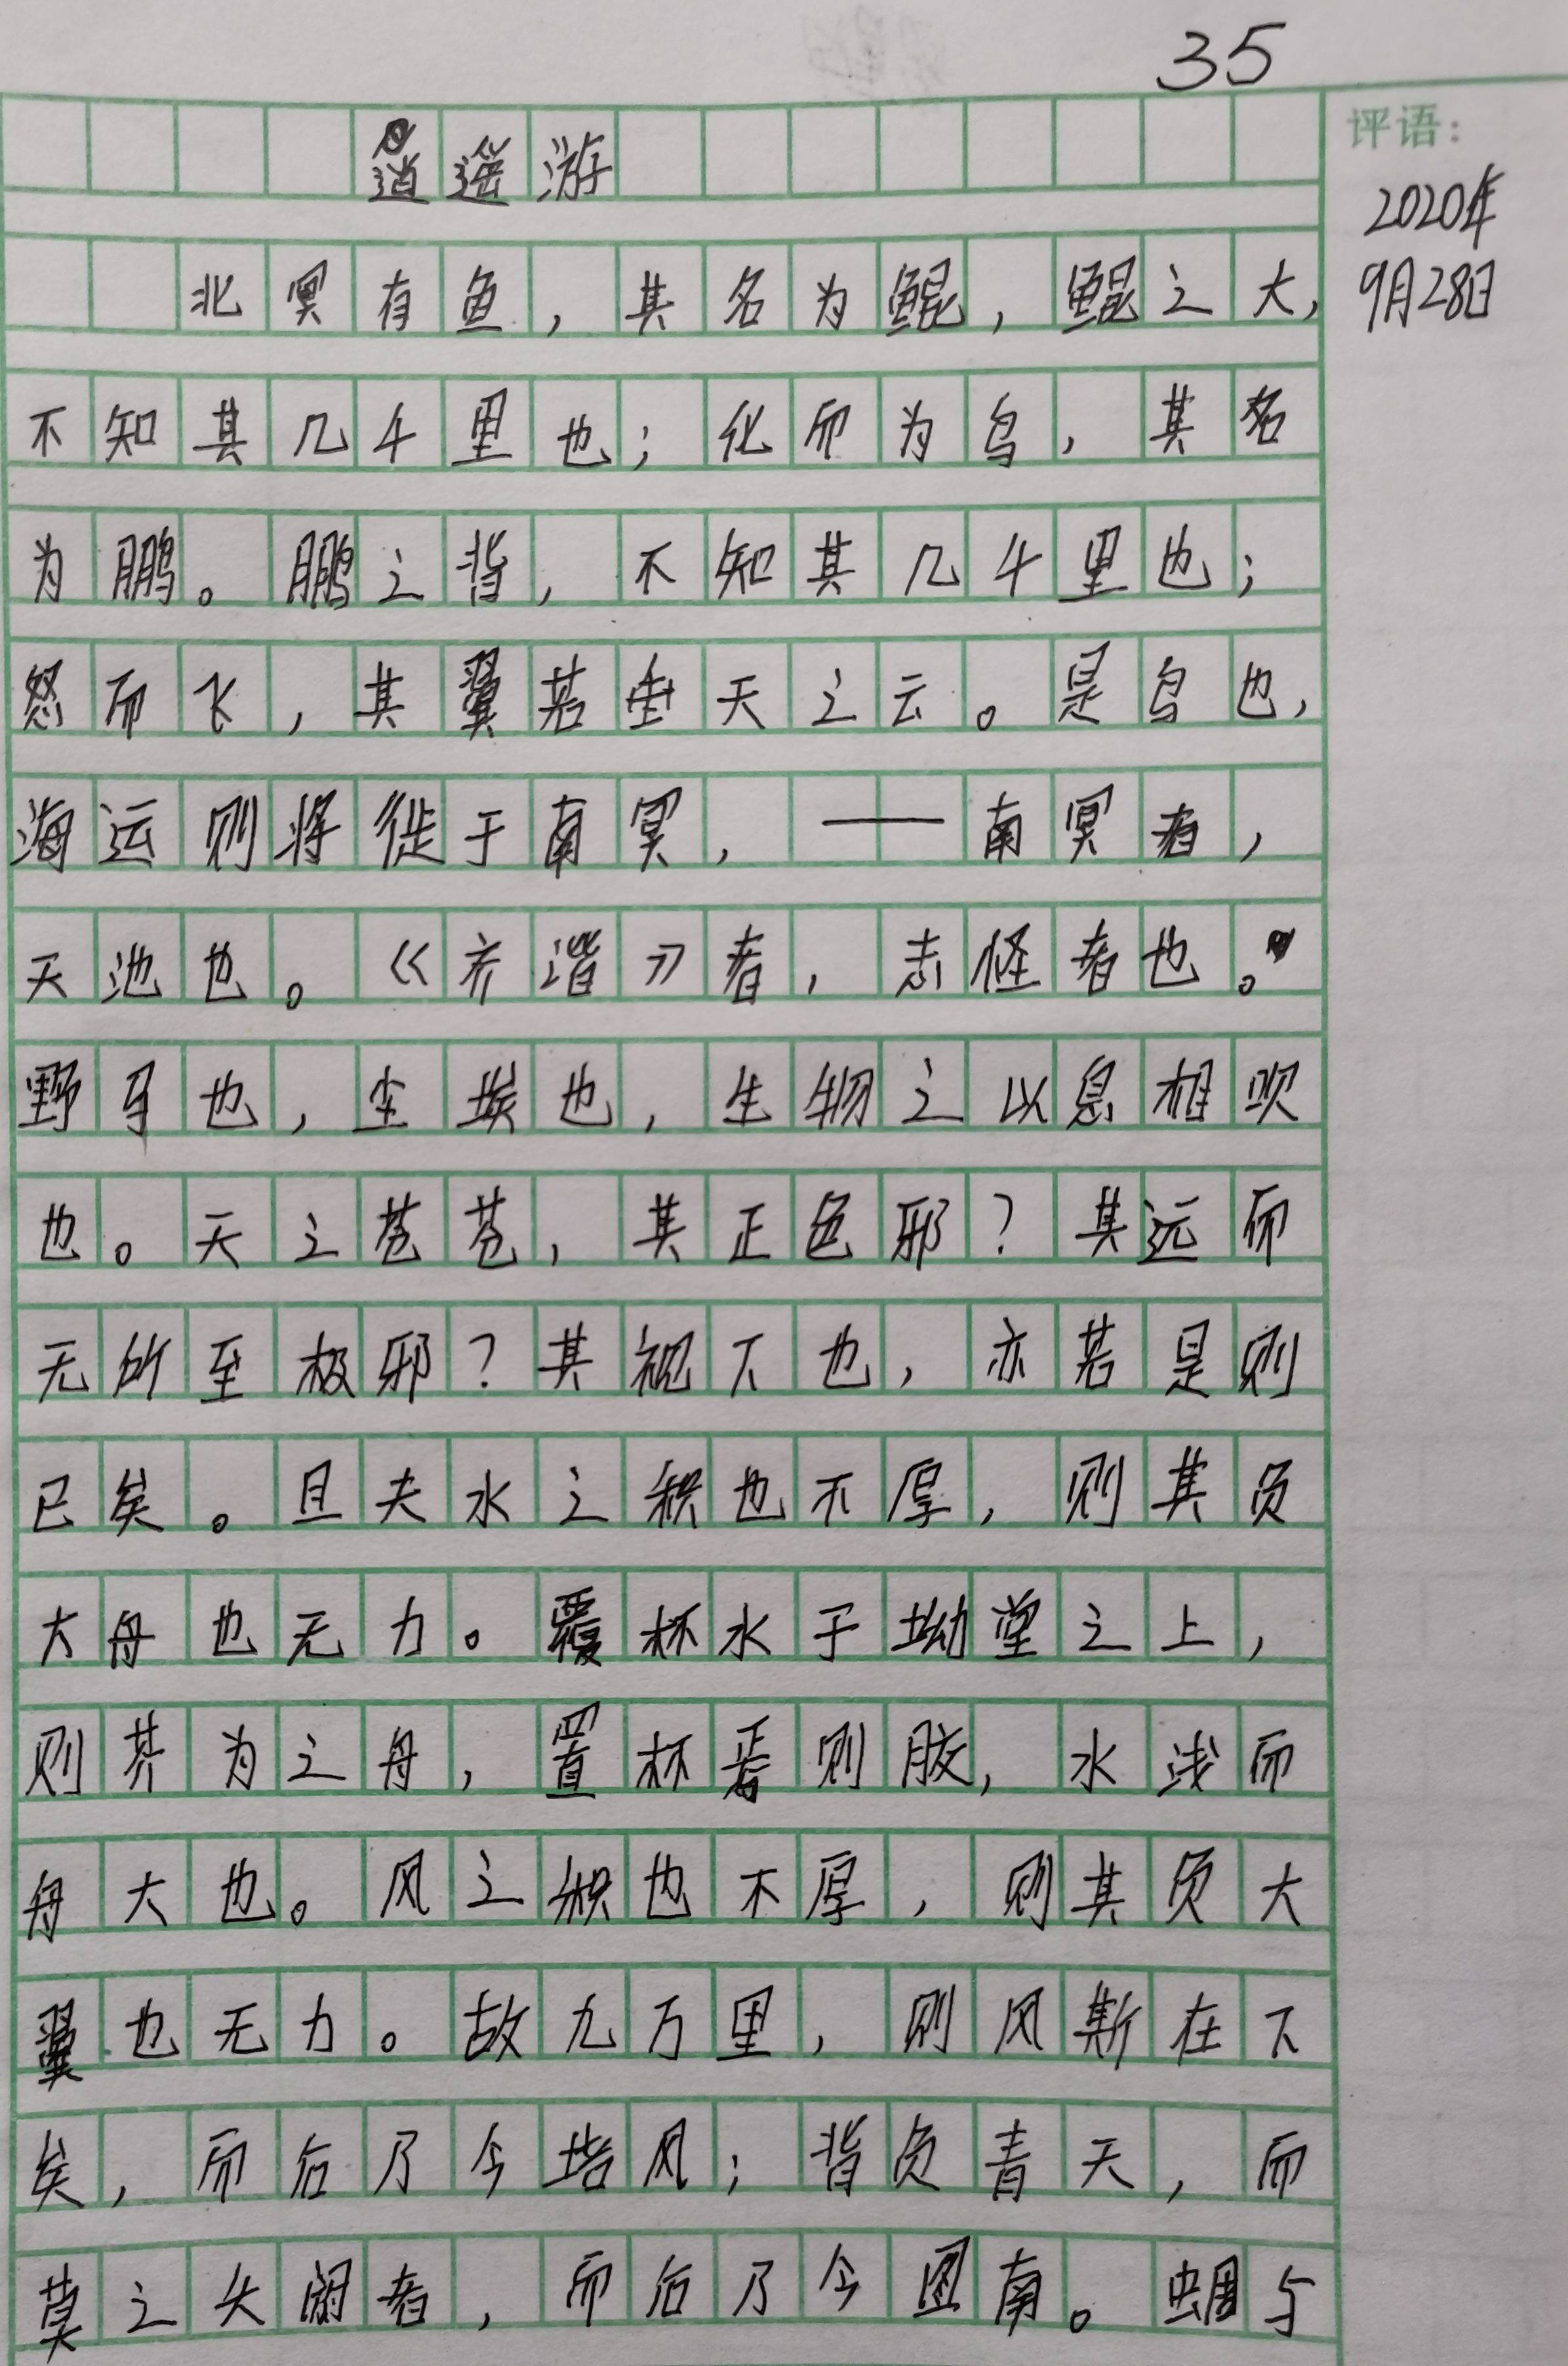 35
逍遥游
评语：
2020年
9月28日
北冥有鱼，其名为鲲，鲲之大，
不知其几千里也；化而为鸟，其名
为鹏。鹏之背，不知其几千里也；
怒而飞，其翼若垂天之云。是鸟也，
海运则将徙于南冥，——南冥者，
天池也。《齐谐》者，志怪者也。
野马也，尘埃也，生物之以息相吹
也。天之苍苍，其正色邪？其远而
无所至极邪？其视下也，亦若是则
已矣。且夫水之积也不厚，则其负
大舟也无力。覆杯水于坳堂之上，
则芥为之舟，置杯焉则胶，水浅而
舟大也。风之积也不厚，则其负大
翼也无力。故九万里，则风斯在下
矣，而后乃今培风；背负青天，而
莫之夭阏者，而后乃今图南。蜩与